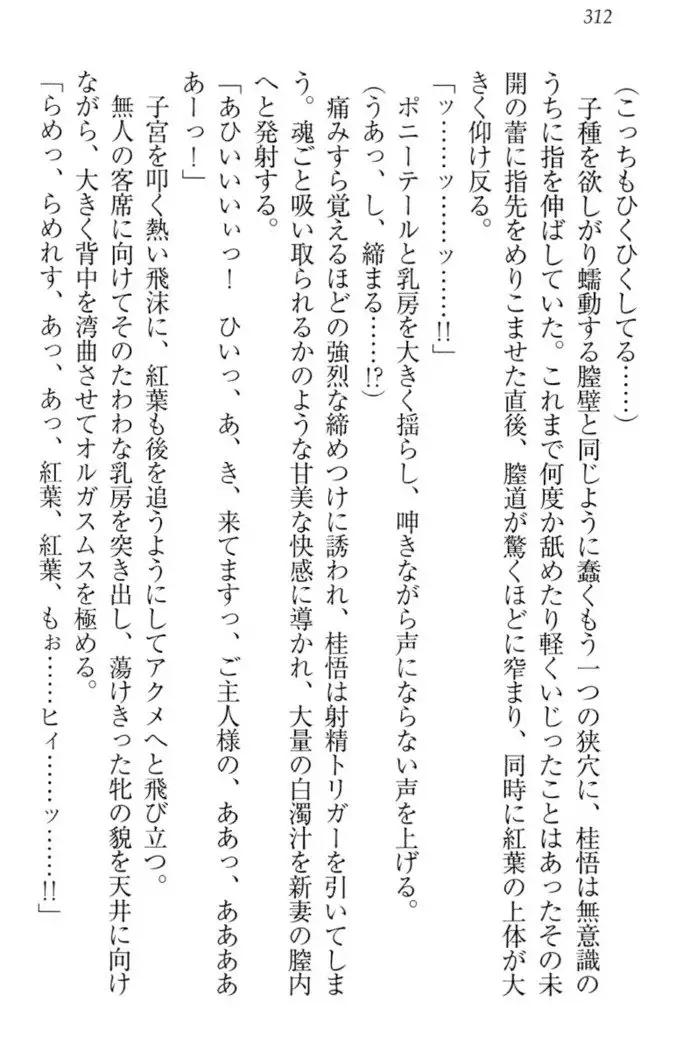 312
(こっちもひくひくしてる……)
　子種を欲しがり蠕動する膣壁と同じように蠢くもう一つの狭穴に、桂悟は無意識の
うちに指を伸ばしていた。これまで何度か舐めたり軽くいじったことはあったその未
開の蕾に指先をめりこませた直後、膣道が驚くほどに窄まり、同時に紅葉の上体が大
きく仰け反る。
「ッ……ッ……ッ……!!」
　ポニーテールと乳房を大きく揺らし、呻きながら声にならない声を上げる。
(うあっ、し、締まる……!?)
　痛みすら覚えるほどの強烈な締めつけに誘われ、桂悟は射精トリガーを引いてしま
う。魂ごと吸い取られるかのような甘美な快感に導かれ、大量の白濁汁を新妻の膣内
へと発射する。
「あひいいいぃっ！　ひいっ、あ、き、来てますっ、ご主人様の、ああっ、ああああ
あーっ！」
　子宮を叩く熱い飛沫に、紅葉も後を追うようにしてアクメへと飛び立つ。
　無人の客席に向けてそのたわわな乳房を突き出し、蕩けきった牝の貌を天井に向け
ながら、大きく背中を湾曲させてオルガスムスを極める。
「らめっ、らめれす、あっ、あっ、紅葉、紅葉、もぉ……ヒィ……ッ……!!」